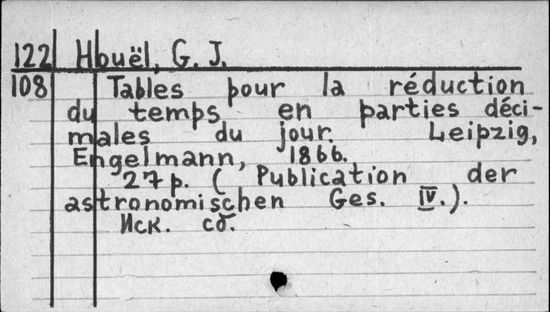 122 Hhuël, G. J.
108 Tables pour la réduction
du temps en parties déci-
males du jour. Leipzig,
Engelmann, 1866.
27 p. ( Publication der
astronomischen Ges. IV.).
Иск. сб.